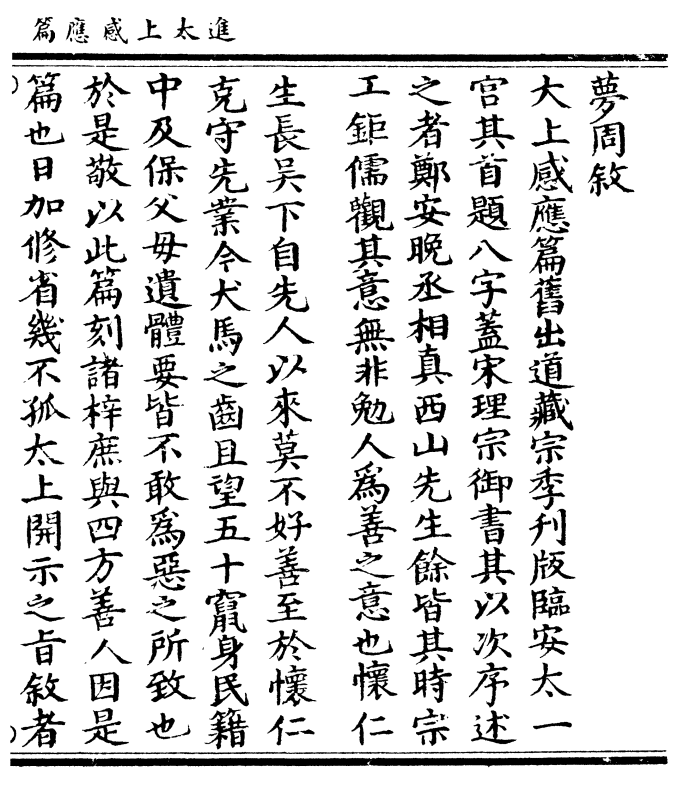 進太上感應篇
夢周敘
大上感應篇舊出道藏宗季刋版臨安太一
宮其首題八字蓋宋理宗御書其以次序述
之者鄭安晩丞相真西山先生餘皆其時宗
工鉅儒觀其意無非勉人爲善之意也懷仁
生長吴下自先人以來莫不好善至於懷仁
克守先業今犬馬之齒且望五十竄身民籍
中及保父母遺體要皆不敢爲惡之所致也
於是敬以此篇刻諸梓庶與四方善人因是
篇也日加修省幾不孤太上開示之旨敘者